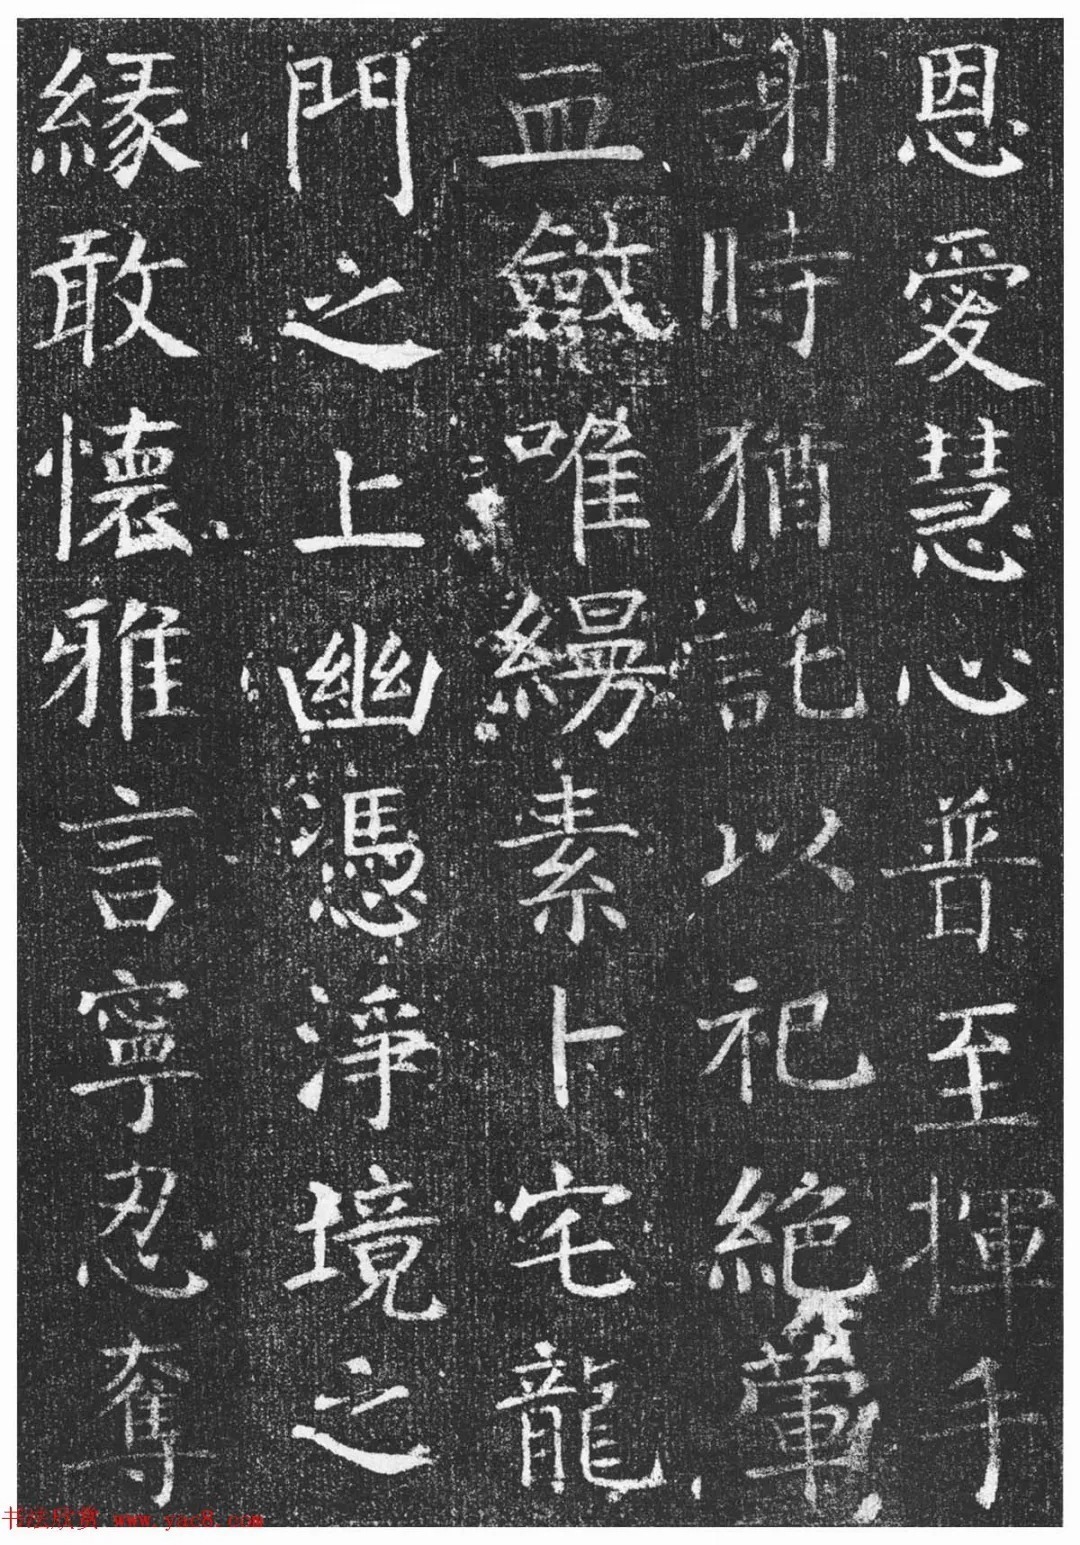 恩愛慧心普至揮手
謝時猶託以祀絕葷
血斂唯縵素卜宅龍
門之上幽憑淨境之
緣敢懷雅言寧忍奪
书法欣赏 www.yac8.com